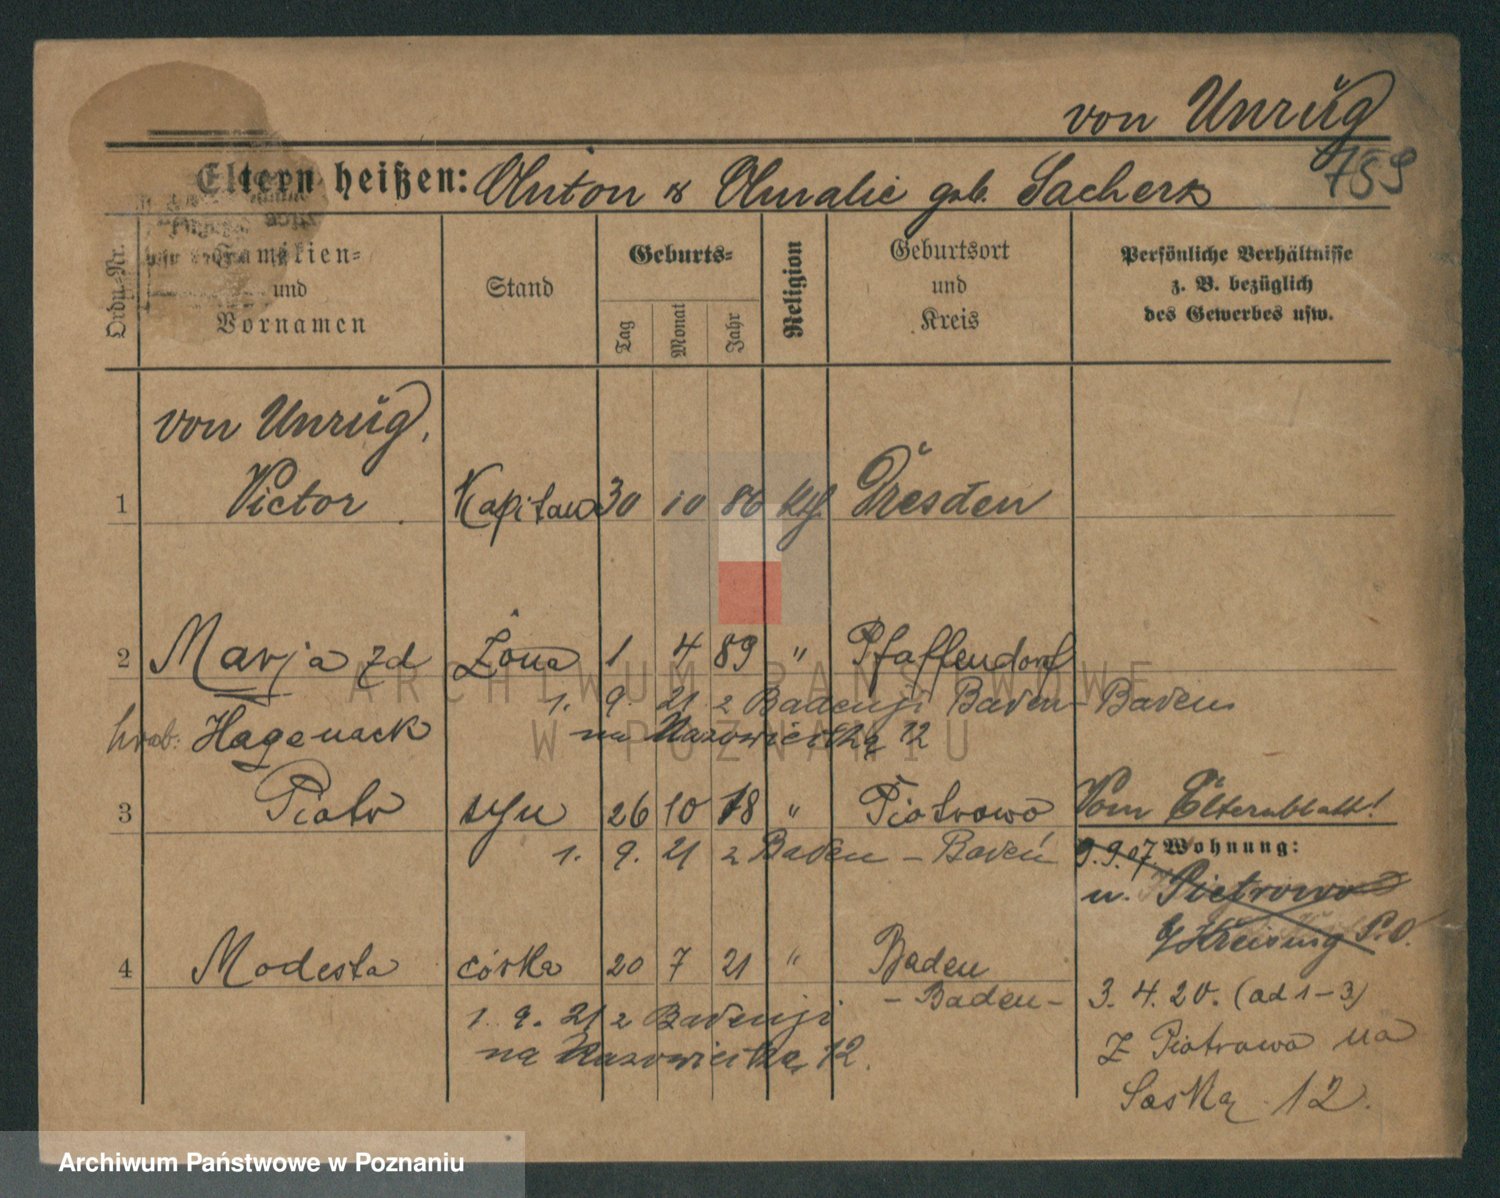 von Unrŭg
789
Eltern heißen: Anton & Amalie geb. Sachers
Ordn.-Nr.
Familien-
und
Vornamen
Stand
Geburts-
Tag
Monat
Jahr
Religion
Geburtsort
und
Kreis
Persönliche Verhältnisse
z. B. bezüglich
des Gewerbes usw.
von Unrŭg,
1 Victor Kapitan 30 10 86 kth Dresden
2 Marja zd Żona 1 4 89 " Pfaffendorf
1. 9. 21 z Badenji Baden-Baden
hrab: Hagenack na Mazowiecką 12
3 Piotr syn 26 10 18 " Piotrowo Vom Elternblatt!
1. 9. 21 z Baden - Baden
9.9.07. Wohnung:
n. Pietrowo
P.O.
4 Modesta córka 20 7 21 " Baden
- Baden -
1. 9. 21 z Badenji
na Mazowiecką 12.
3. 4. 20. (ad 1-3)
Z Piotrowa na
Saską 12.
ARCHIWUM PAŃSTWOWE
W POZNANIU
Archiwum Państwowe w Poznaniu